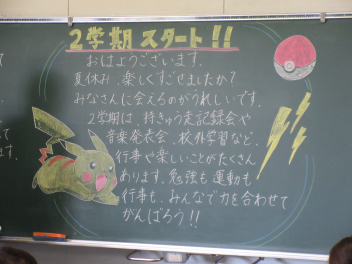 2学期 スタート!!
おはようございます。
夏休み、楽しくすごせましたか?
みなさんに会えるのがうれしいです。
2学期は、持きゅう走記録会や
音楽発表会、校外学習など、
行事や楽しいことがたくさん
あります。勉強も運動も
行事も、みんなで力を合わせて
がんばろう!!